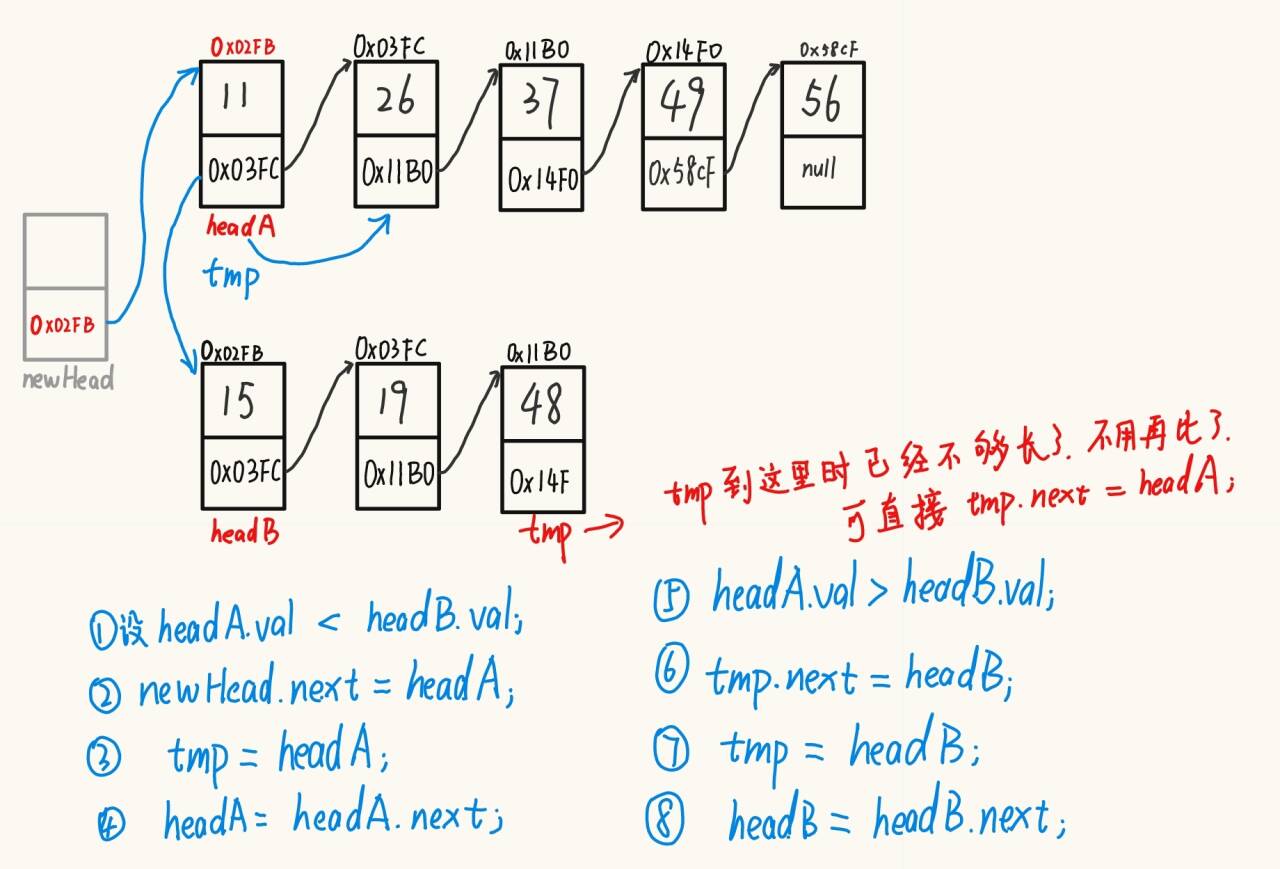 0x02FB 0x03FC 0x11B0 0x14F0 0x58CF
11 26 37 49 56
0x03FC 0x11B0 0x14F0 0x58CF null
headA
tmp
0x02FB
newHead
0x02FB 0x03FC 0x11B0
15 19 48
0x03FC 0x11B0 0x14F
headB
tmp
tmp到这里时已经不够长了.不用再比了.
可直接 tmp.next = headA;
①设headA.val < headB.val;
②newHead.next = headA;
③ tmp = headA;
④ headA = headA.next;
⑤ headA.val > headB.val;
⑥ tmp.next = headB;
⑦ tmp = headB;
⑧ headB = headB.next;